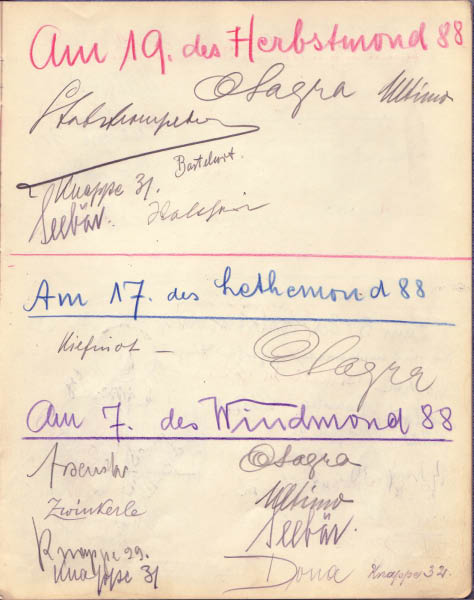 Am 19. des Herbstmond 88
OSagra Ultimo
Stabstrompeter
Knappe 31.
Seebär.
Am 17. des Lethemond 88
OSagra
Am 7. des Windmond 88
OSagra
Zwinkerle
Ultimo
Seebär.
Knappe 29.
Knappe 31
Dona Knappe 32.